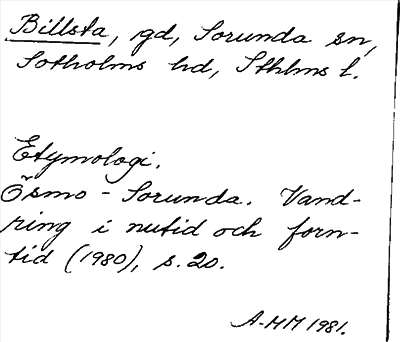 Billsta, gd, Sorunda sn,
Sotholms hd, Sthlms l.
Etymologi.
Ösmo - Sorunda. Vand-
ring i nutid och forn-
tid (1980), s. 20.
A-MM 1981.